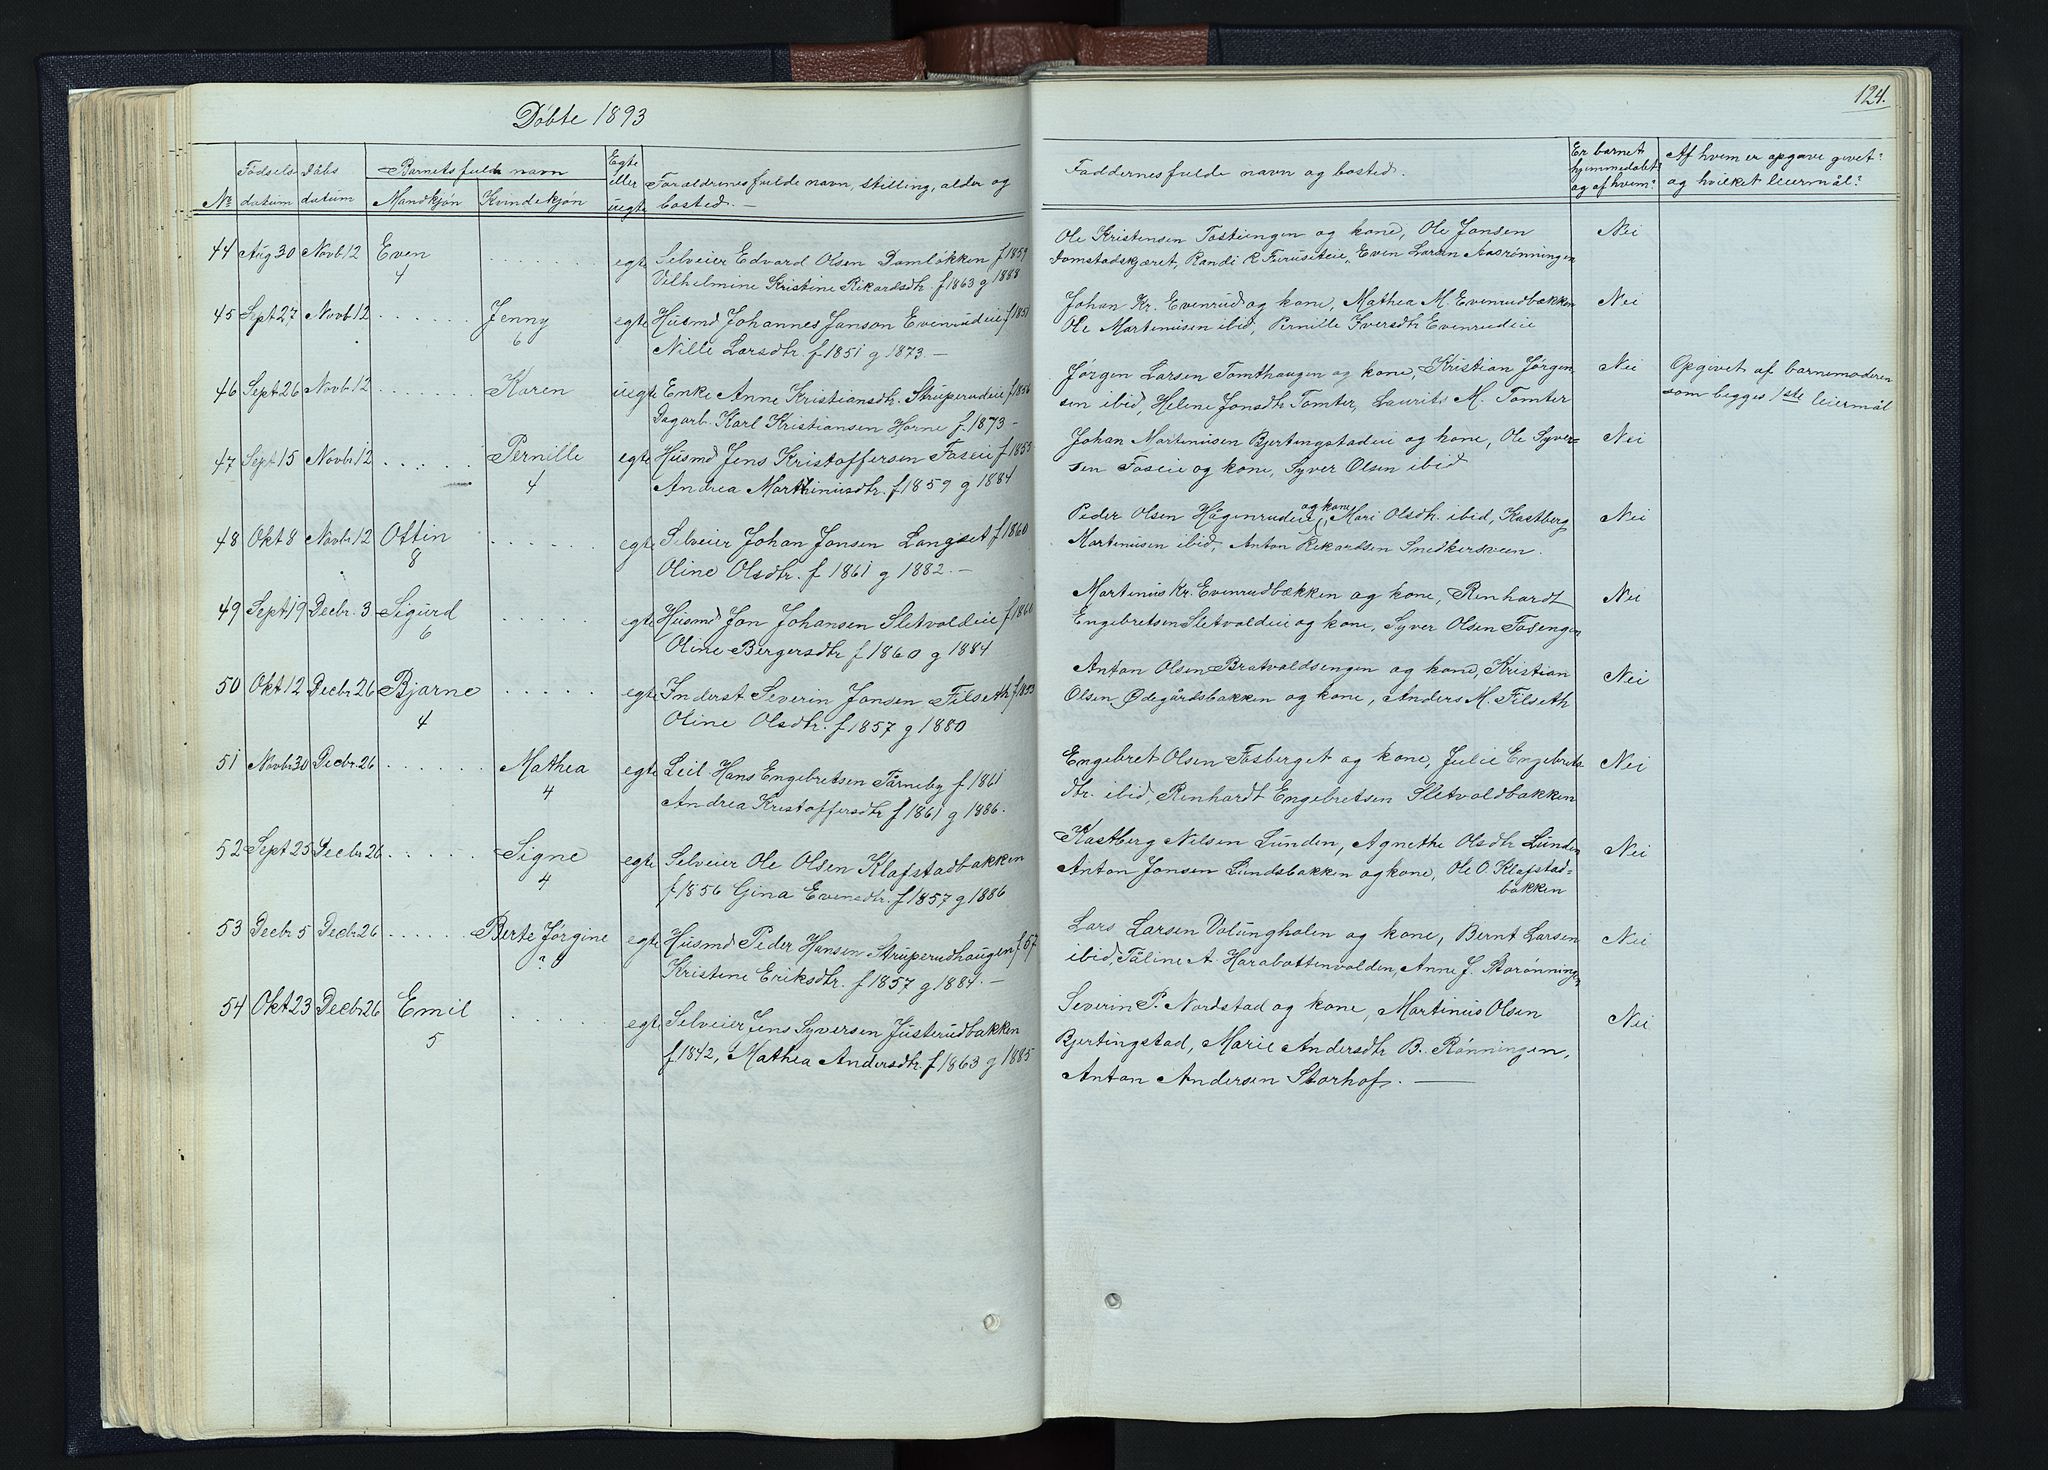 Døbte 1893
124.
No Fødsels datum Dåbs datum Barnets fulde navn Mandkjøn Kvindekjøn Egte eller uegte Forældrenes fulde navn, stilling, alder og bosted. —
Faddernes fulde navn og bosted. Er barnet hjemmedøbt? og af hvem? Af hvem er opgave givet? og hvilket leiermål?
44 Aug 30 Novb 12 Even 4 egte Selveier Edvard Olsen Domløkken f 1859
Vilhelmine Kristine Rikardsdtr. f 1863 g 1888
Ole Kristensen Tostiengen og kone, Ole Jonsen Nei
Tomstadskjæret, Randi R Furuseteie, Even Larsen Aasrønningen
45 Sept 27 Novb 12 Jenny 6 egte Husmd Johannes Janson Evenrudeie f 1851
Nille Larsdtr. f 1851 g 1873. —
Johan Kr. Evenrud og kone, Mathea M. Evenrudbækken Nei
Ole Martinusen ibid, Pernille Iversdtr Evenrudeie
46 Sept 26 Novb 12 Karen uegte Enke Anne Kristiansdtr. Struperudeie f 1856
Dagarb. Karl Kristiansen Horne f. 1873 —
Jørgen Larsen Tomthaugen og kone, Kristian Jørgen- Nei Opgivet af barnemoderen
sen ibid, Helene Jonsdtr Tomter, Laurits M. Tomter som begges 1ste leiermål
47 Sept 15 Novbr 12 Pernille 4 egte Husmd Jens Kristoffersen Foseie f 1853
Andrea Marthinusdtr. f 1859 g 1884
Johan Martinusen Bjertingstadeie og kone, Ole Syver- Nei
sen Foseie og kone, Syver Olsen ibid
48 Okt 8 Novbr 12 Ottin 8 egte Selveier Johan Jonsen Langset f 1860
Oline Olsdtr. f 1861 g 1882. —
Peder Olsen Høgenrudeie og kone, Mari Olsdtr. ibid, Kastberg Nei
Martinusen ibid, Anton Rikardsen Snedkersveen.
49 Sept 19 Decbr. 3 Sigurd 6 egte Husmd Jon Johansen Sletvoldeie f 1860
Oline Bergersdtr f 1860 g 1884
Martinus Kr. Evenrudbækken og kone, Renhardt Nei
Engebretsen Sletvoldeie og kone, Syver Olsen Fosengen
50 Okt 12 Decbr 26 Bjarne 4 egte Inderst Severin Jonsen Filseth f 1853
Oline Olsdtr. f 1857 g 1880
Anton Olsen Bratvoldsengen og kone, Kristian Nei
Olsen Ødegårdsbakken og kone, Anders M. Filseth
51 Novbr 30 Decbr 26 Mathea 4 egte Leil. Hans Engebretsen Tårneby f 1861
Andrea Kristoffersdtr f 1861 g 1886.
Engebret Olsen Fosberget og kone, Julie Engebrets- Nei
dtr. ibid, Renhardt Engebretsen Sletvoldbakken
52 Sept 25 Decbr 26 Signe 4 egte Selveier Ole Olsen Klafstadbakken
f. 1856 Gina Evensdtr. f 1857 g 1886
Kastberg Nilsen Lunden, Agnethe Olsdtr Lunden Nei
Anton Jonsen Lundsbakken og kone, Ole O. Klafstad-
bakken
53 Decbr 5 Decbr 26 Berte Jørgine ? egte Husmd Peder Hansen Struperudhaugen f. 57
Kristine Eriksdtr. f 1857 g 1884. —
Lars Larsen Volungholen og kone, Bernt Larsen Nei
ibid, Tåline A Harabottenvolden, Anne J. Storønningen
54 Okt 23 Decbr 26 Emil 5 egte Selveier Jens Syversen Justerudbakken
f. 1842, Mathea Andersdtr. f 1863 g 1885
Severin P. Nordstad og kone, Martinus Olsen Nei
Bjertingstad, Marie Andersdtr B. Rønningen,
Anton Andersen Storhof. —